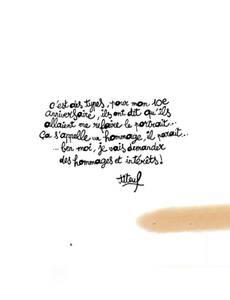 c'est des types, pour mon 10e
anniversaire, ils ont dit qu'ils
allaient me refaire le portrait...
Ça s'appelle un hommage, il parait...
... ben moi, je vais demander
des hommages et intérêts!
titeuf